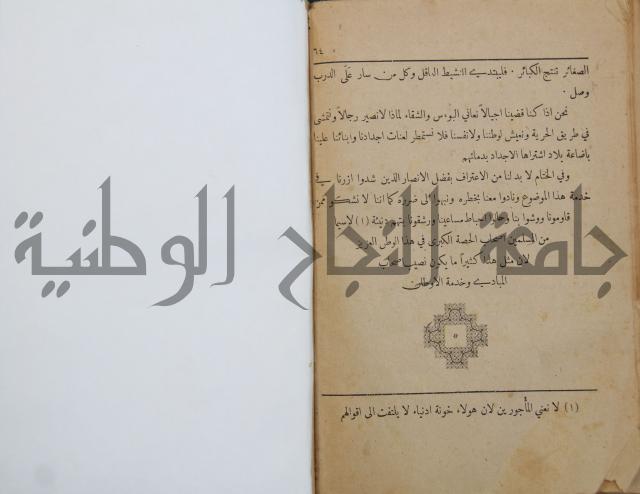 ٦٤
الصغائر تنتج الكبائر . فليبتدىء النشيط العاقل وكل من سار على الدرب
وصل .
نحن اذا كنا قضينا اجيالاً نعاني البوءس والشقاء لماذا لا نصير رجالاً ونتمشى
في طريق الحرية ونعيش لوطننا ولانفسنا فلا نستمطر لعنات اجدادنا وابنائنا علينا
باضاعة بلاد اشتراها الاجداد بدمائهم
وفي الختام لا بد لنا من الاعتراف بفضل الانصار الذين شدوا ازرنا في
خدمة هذا الموضوع ونادوا معنا بخطره ونبهوا الى ضرره كما اننا لا نشكو ممن
قاومونا ووشوا بنا وحاولوا احباط مساعينا ورشقونا بتهم دنيئة (١) لاسيما
من المسلمين اصحاب الحصة الكبرى في هذا الوطن العزيز
لان مثل هذا كثيراً ما يكون نصيب اصحاب
المبادىء وخدمة الاوطان
جامعة النجاح الوطنية
(١) لا نعني المأجورين لان هولاء خونة ادنياء لا يلتفت الى اقوالهم